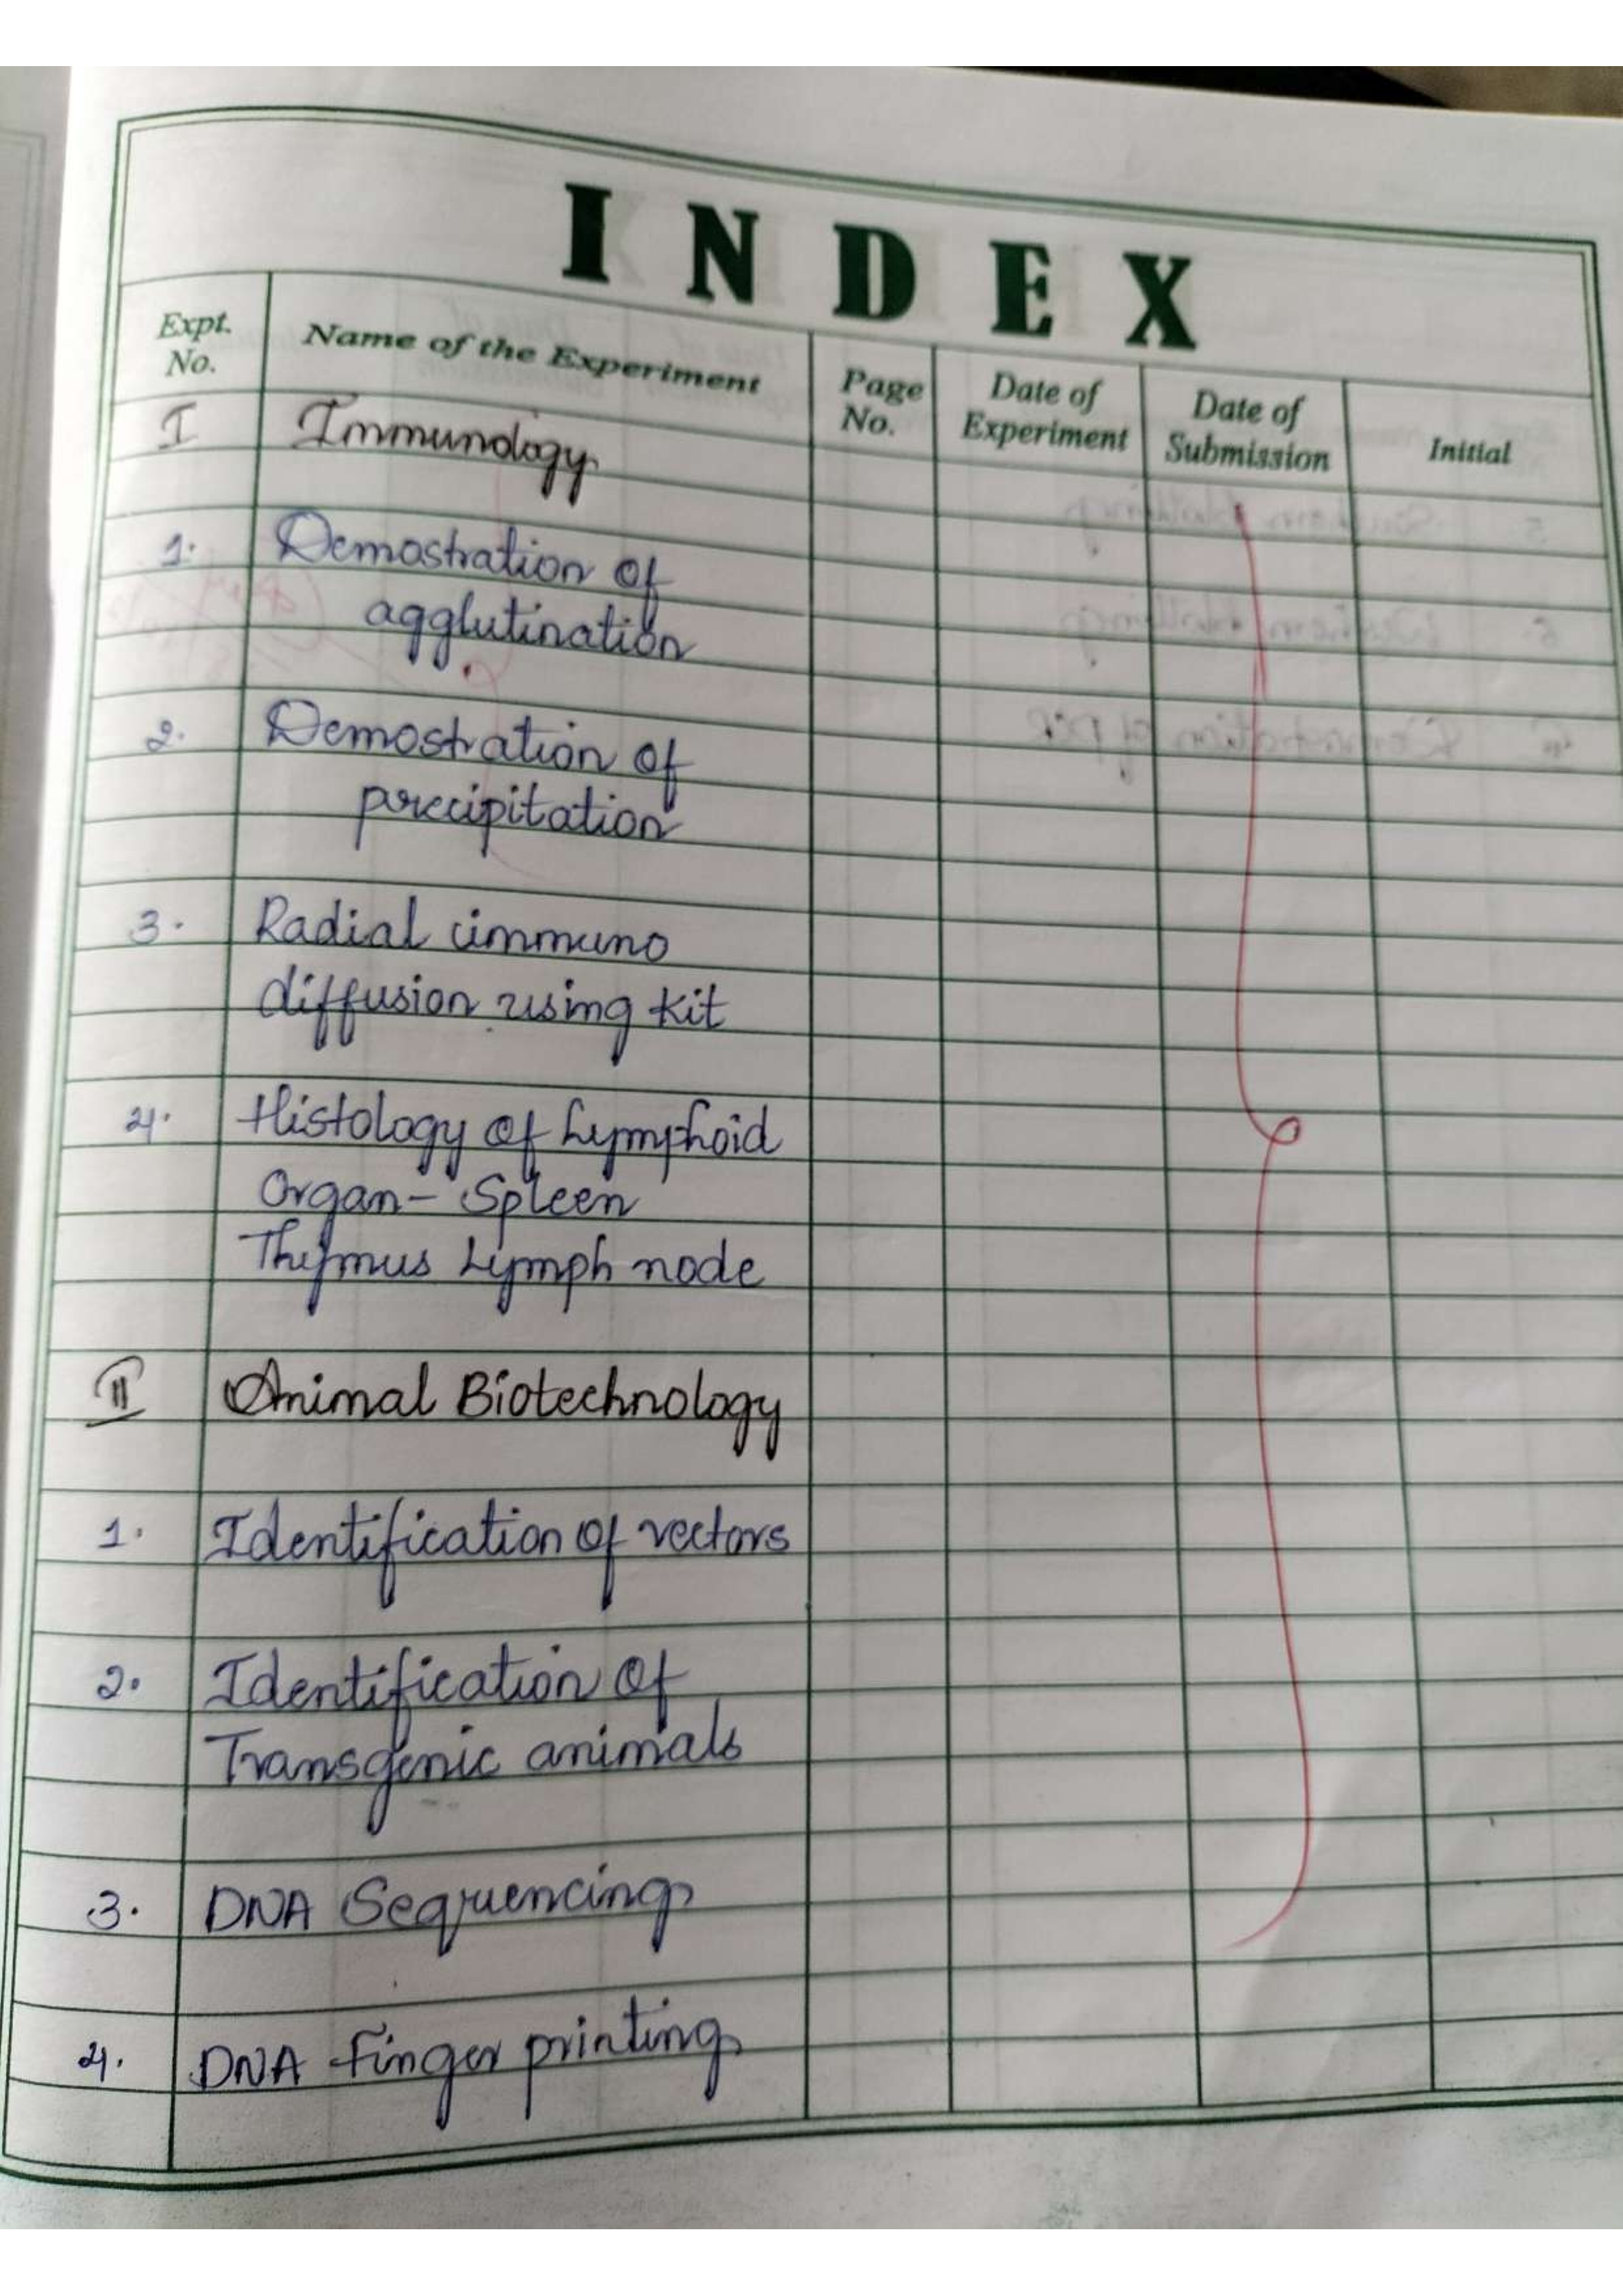 INDEX
Expt. No. Name of the Experiment Page No. Date of Experiment Date of Submission Initial
I Immunology
1. Demostration of
agglutination
2. Demostration of
precipitation
3. Radial immuno
diffusion using kit
4. Histology of Lymphoid
Organ- Spleen
Thymus Lymph node
II Animal Biotechnology
1. Identification of vectors
2. Identification of
Transgenic animals
3. DNA Sequencing
4. DNA finger printing